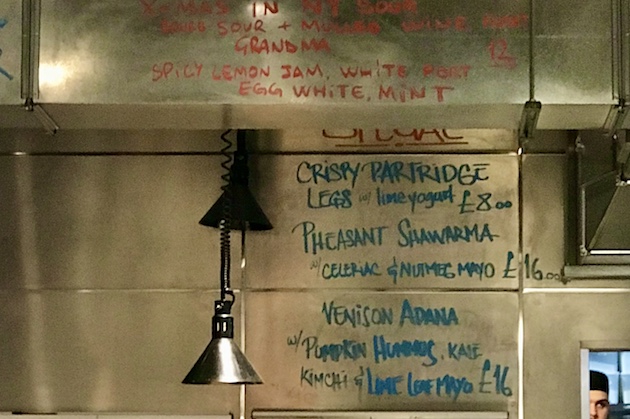 X-MAS IN MY SOUR
SOUR + MULLED WINE PORT
GRANDMA 12
SPICY LEMON JAM, WHITE PORT
EGG WHITE, MINT
SPECIAL
CRISPY PARTRIDGE
LEGS w/ lime yogurt £8.00
PHEASANT SHAWARMA
w/ CELERIAC & NUTMEG MAYO £16.00
VENISON ADANA
w/ PUMPKIN HUMMUS, KALE
KIMCHI & LIME LEAF MAYO £16